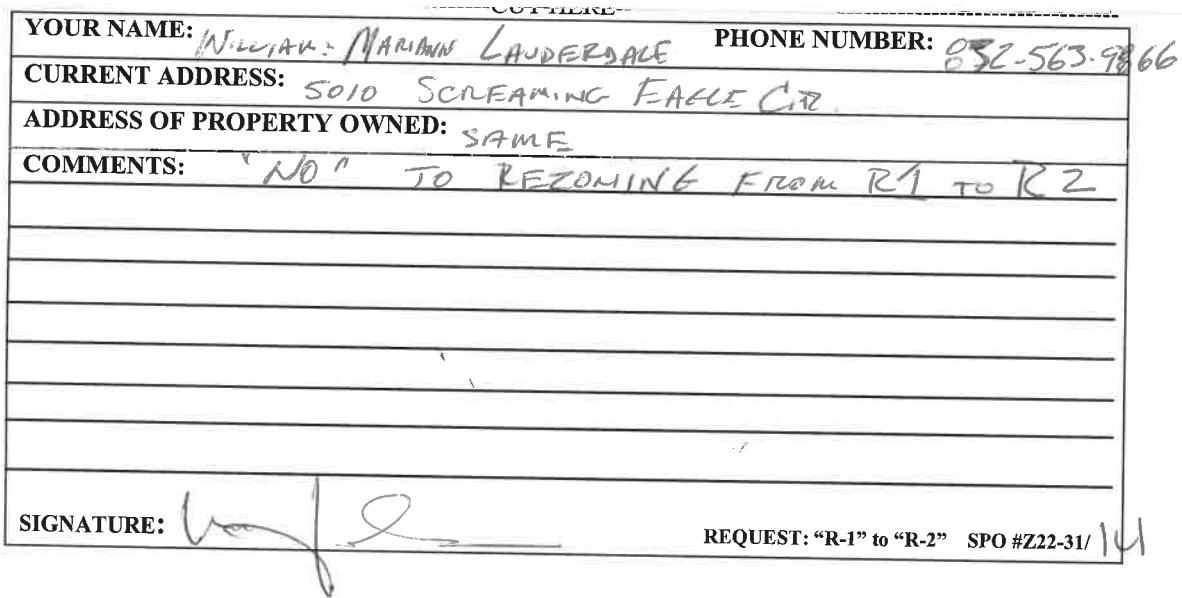 CUT HERE
YOUR NAME: WILLIAM & MARIANN LAUDERDALE PHONE NUMBER: 832-563-9866
CURRENT ADDRESS: 5010 SCREAMING EAGLE CIR
ADDRESS OF PROPERTY OWNED: SAME
COMMENTS: "NO" TO REZONING FROM R1 TO R2
SIGNATURE: REQUEST: “R-1” to “R-2” SPO #Z22-31/ 14